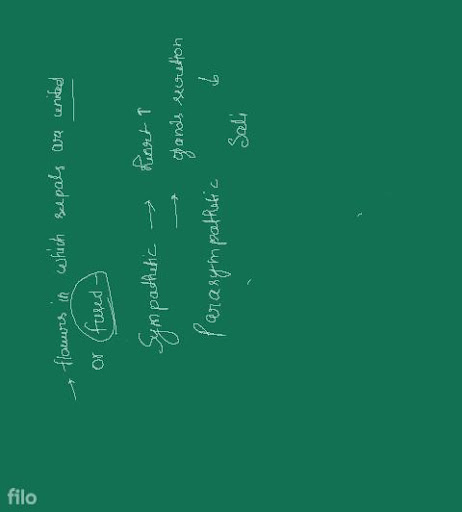 → flowers in which sepals are united
or fused
Sympathetic → heart ↑
→ glands secretion
Parasympathetic Sali
filo